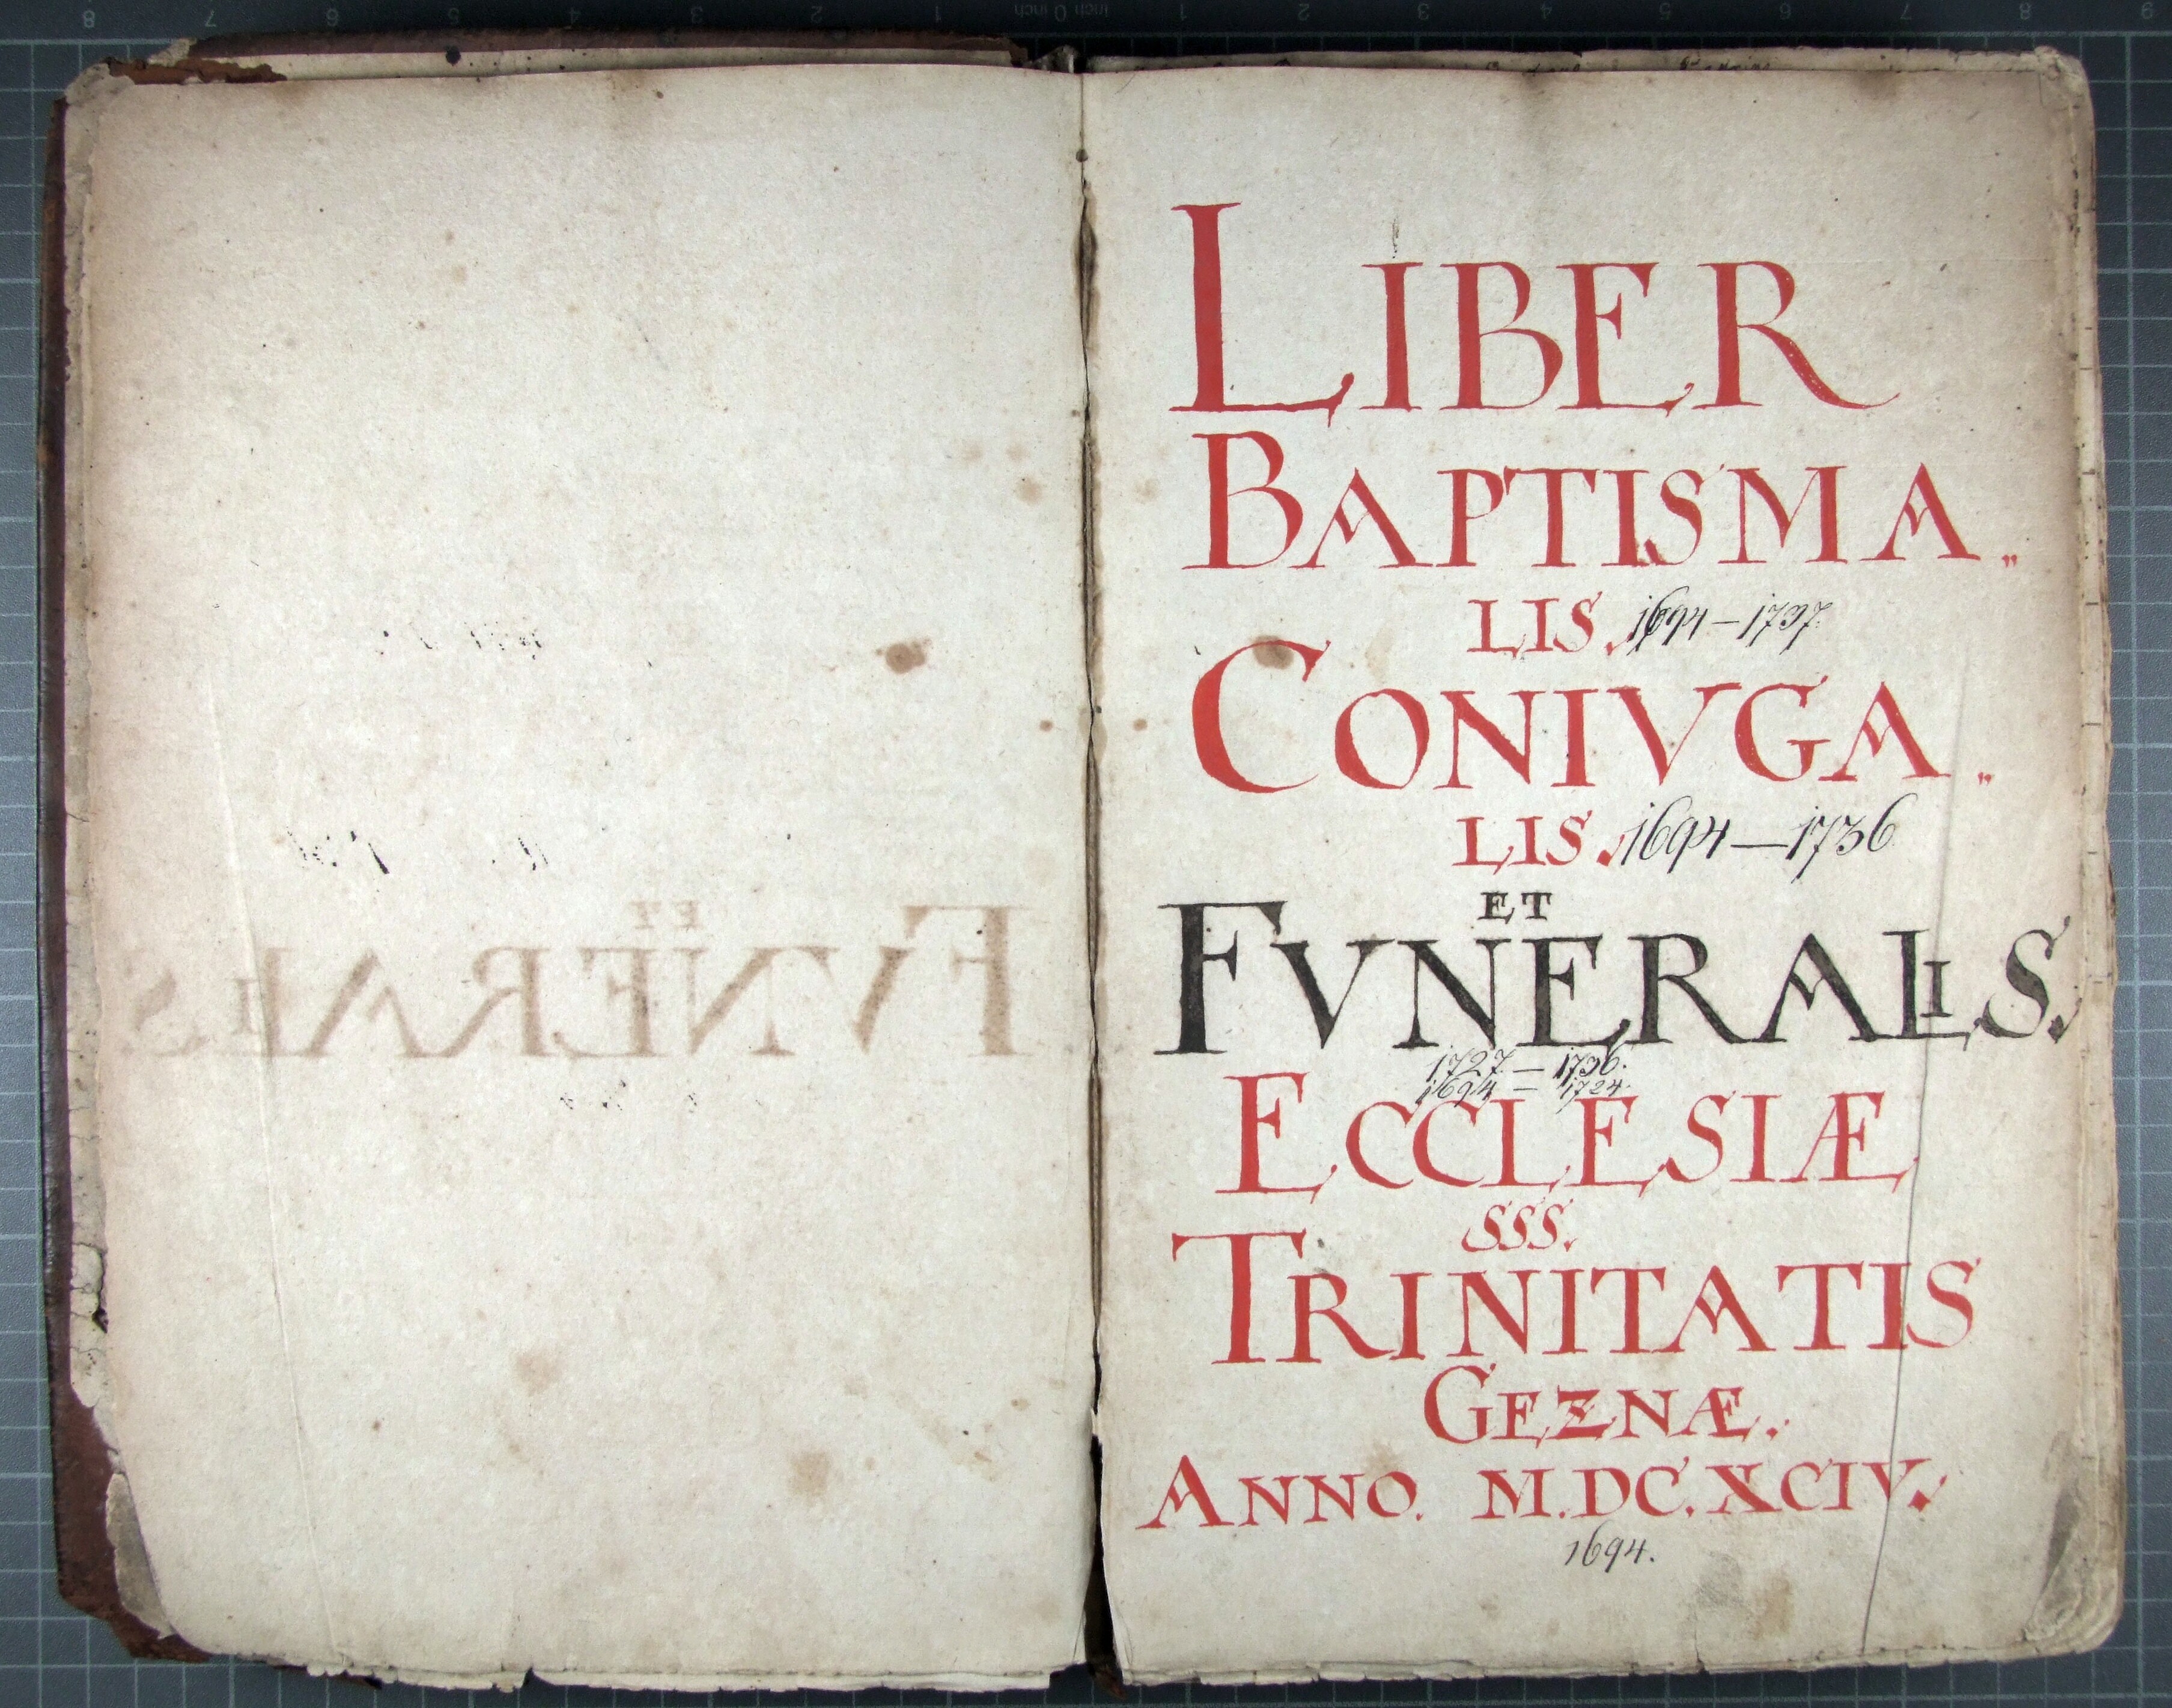 LIBER
BAPTISMA„
LIS. 1694 – 1737.
CONIVGA„
LIS. 1694 – 1736
ET
FVNERALIS.
1727 – 1736.
1694 = 1724.
ECCLESIÆ
SSS.
TRINITATIS
GEZNÆ.
ANNO. M.DC.XCIV.
1694.